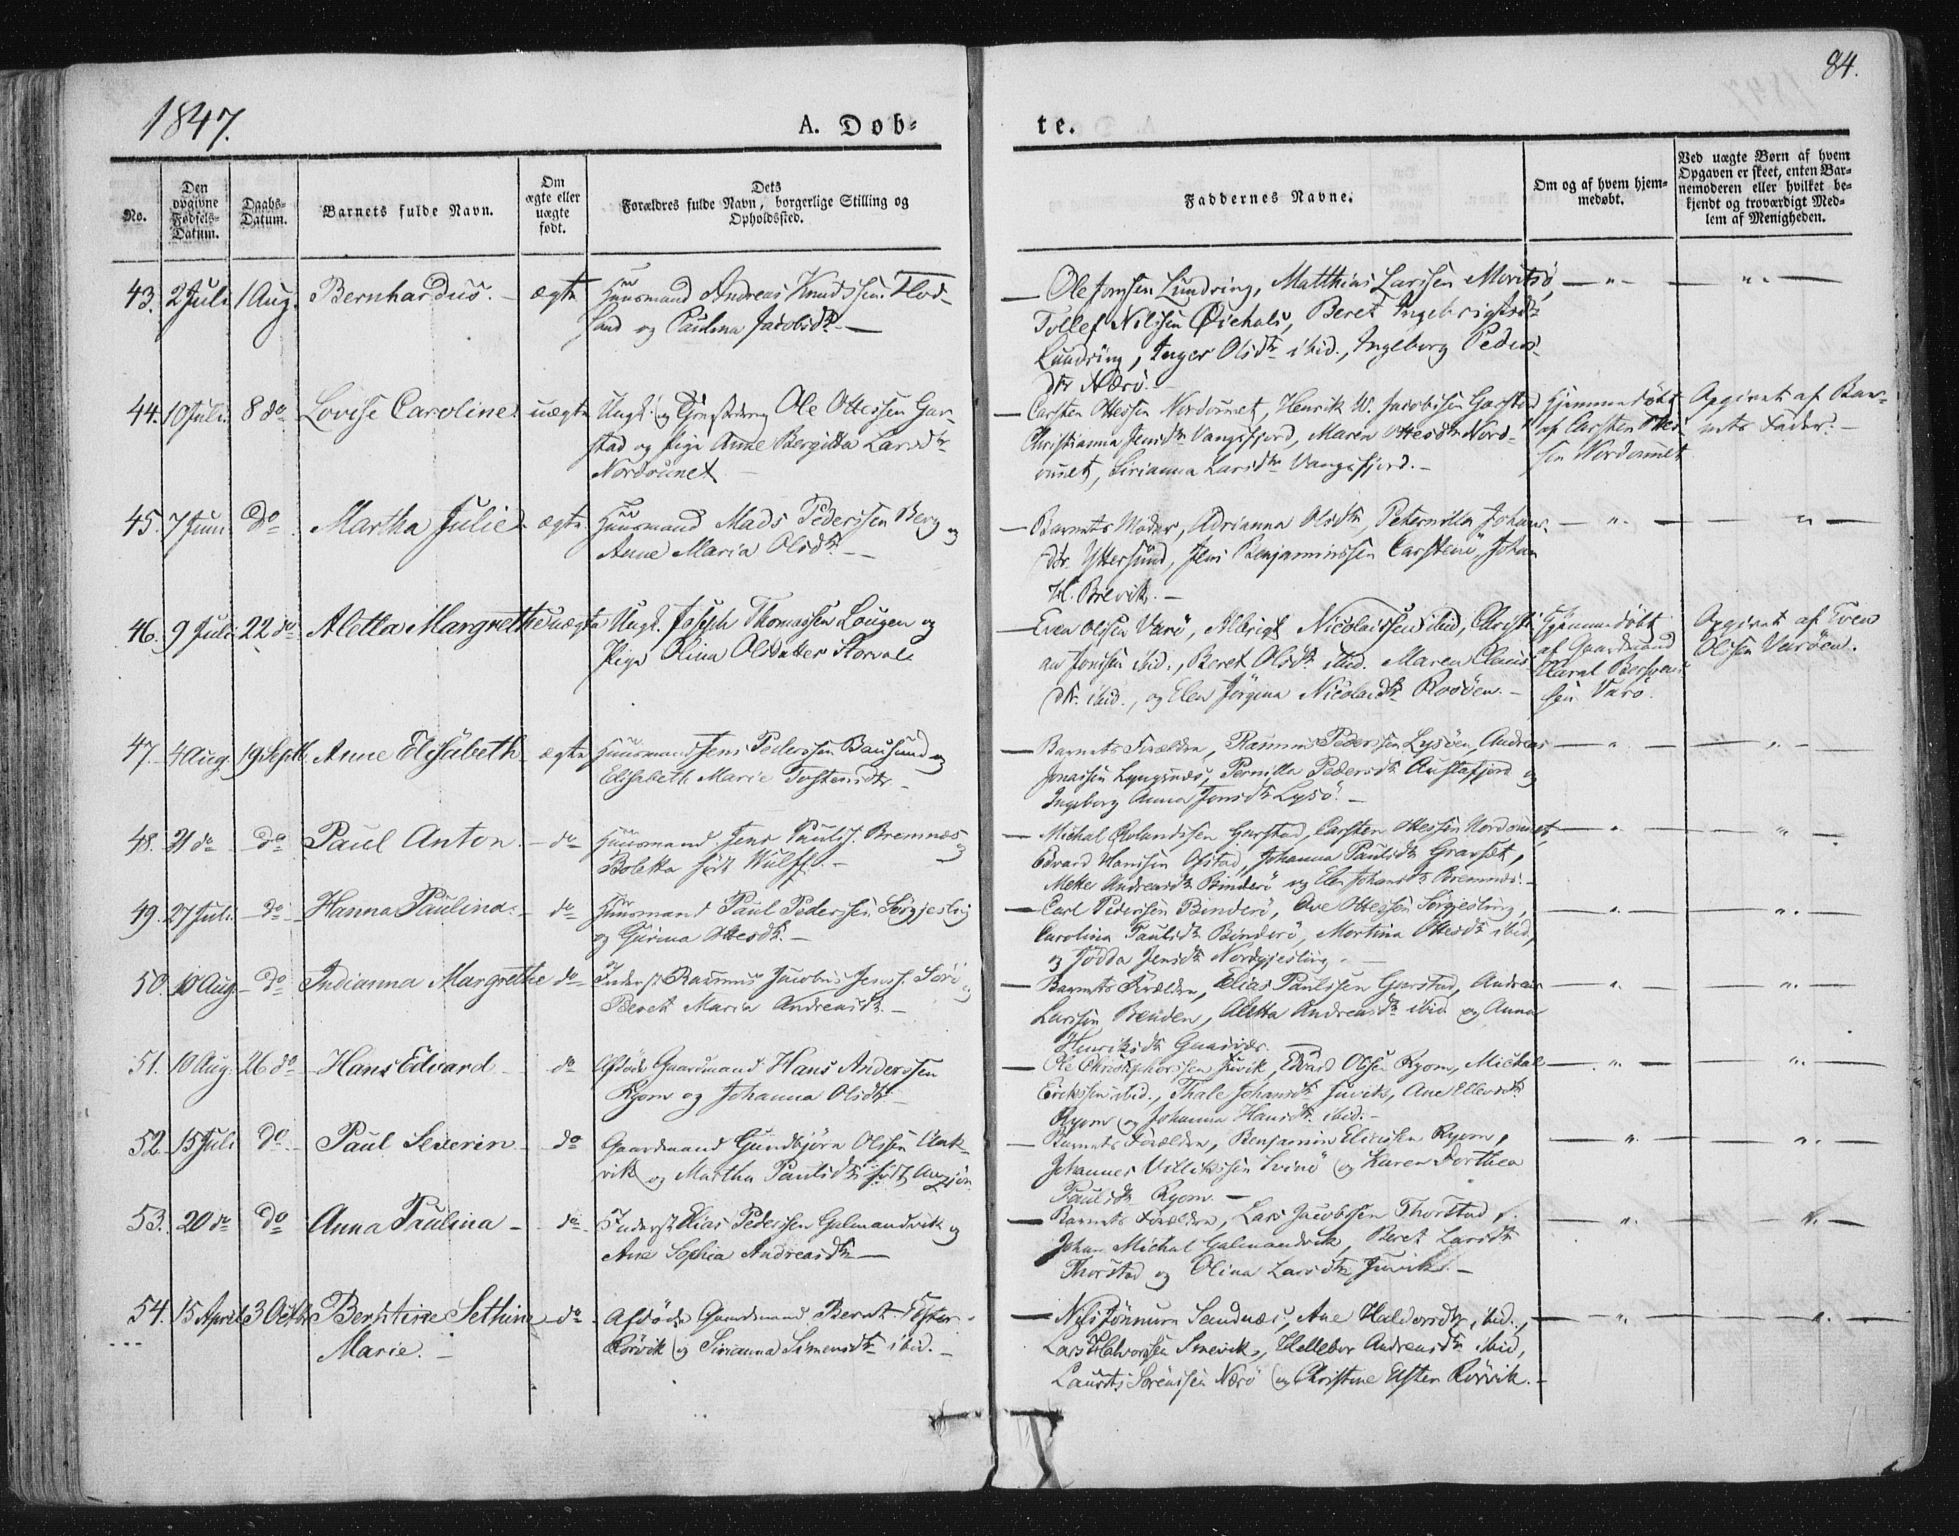 84.
1847.
A. Døb-
te.
No.
Den opgivne Fødsels-Datum.
Daabs-Datum.
Barnets fulde Navn.
Om ægte eller uægte født.
Dets Forældres fulde Navn, borgerlige Stilling og Opholdssted.
Faddernes Navne.
Om og af hvem hjem-medøbt.
Ved uægte Børn af hvem Opgaven er skeet, enten Bar-nemoderen eller hvilket be-kjendt og troværdigt Med-lem af Menigheden.
43. 2 Juli. 1 Aug. Bernhardus. - ægte Huusmand Andreas Knudssen Flod-
land og Paulina Jacobsdtr -
- Ole Jonsen Lundring, Matthias Larssen Moritsø,
Tollef Nilssen Øiehals, Beret Ingebrigtsdtr
Lundring, Inger Olsdtr ibid., Ingeborg Peders-
dtr Nærø. -
44. 10 Juli. 8 do Lovise Caroline. uægte Ungk. og Ole Ottessen Gar-
stad og Pige Anne Bergitta Larsdtr
Nordounet -
- Carsten Ottessen Nordounet, Henrik W. Jacobssen Garstad
Christianna Jensdtr Vangsfjord, Maren Ottesdtr Nord-
ounet, Sirianna Larsdtr Vangsfjord. -
Hjemmedøbt
af Carsten Ottes-
sen Nordounet
Opgivet af Bar-
nets Fader. -
45. 7 Juni do Martha Julie - ægte Huusmand Mads Pederssen Berg og
Anne Maria Olsdtr -
- Barnets Moder, Adrianna Olsdtr, Peternilla Johans-
dtr. Yttersund, Jens Benjaminssen Carstenø, Johan
H. Brevik. -
46. 9 Juli 22 do Aletta Margrethe uægte Ungk. Joseph Thomassen Lougen og
Pige Olina Olsdatter Storval
- Even Olssen Varø, Albrigt Nicolaissen ibid, Christi-
an Jonssen ibid., Beret Olsdtr ibid. Maren Claus-
dtr. ibid., og Elen Jørgina Nicolaidtr Roøen. -
Hjemmedøbt
af Gaardmand
sen Varø.
Opgivet af Even
Olssen Varøen.
47. 4 Aug. 19 Septb. Anne Elisabeth - ægte Huusmand Jens Pederssen Bausund og
Elisabeth Marie Tostensdtr -
- Barnets Forældre, Rasmus Pederssen Lysøen, Andreas
Jonassen Lyngsnæs, Pernilla Pedersdtr Oustafjord og
Ingeborg Anna Jonsdtr Lysø. -
48. 21 do do Paul Anton. - do Huusmand Jens Pauls. Bremnæs og
Boletta født Wulff. -
- Michal Garstad, Carsten Ottessen Nordounet,
Edvard Hanssen Ofstad, Johanna Paulsdtr Gravset,
Mette Andreasdtr Binderø og Elen Johansdtr Bremnæs. -
49. 27 Juli. do Hanna Paulina. - do Huusmand Paul Pederssen Sørgjesling
og Gurina Ottesdtr. -
- Carl Pederssen Binderø, Ove Ottessen Sørgjesling,
Carolina Paulsdtr Binderø, Martina Ottesdtr ibid,
og Jødda Jensdtr Nordgjesling. -
50. 10 Aug. do Indianna Margrethe do Inderst Rasmus Jacobus Jenss. Sørø og
Beret Maria Andreasdtr. -
- Barnets Forældre, Elias Paulssen Garstad, Andreas
Larssen Brenden, Aletta Andreasdtr ibid og Anna
Henriksdtr Gaasvær. -
51. 10 Aug. 26 do Hans Edvard - do Afdøde Gaardmand Hans Anderssen
Ryom og Johanna Olsdtr -
- Ole Christophersen Juvik, Edvard Olssen Ryom, Michal
Erikssen ibid., Thale Johansdtr Juvik, Ane Ellevsdtr
Ryom og Johanna Hansdtr ibid. -
52. 15 Juli do. Paul Severin. - do Gaardmand Gundbjørn Olssen Aak-
vik og Martha Paulsdtr født
- Barnets Forældre, Benjamin Eliassen Ryom,
Johannes Villikssen Svinø og Karen Dorthea
Paulsdtr Ryom. -
53. 20 do do Anna Paulina - do. Inderst Elias Pederssen Galmandvik og
Ane Sophia Andreasdtr -
- Barnets Forældre, Lars Jacobssen Thorstad,
Johan Michal Galmandvik, Beret Larsdtr
Thorstad og Olina Larsdtr Juvik. -
54. 15 April 3 Octbr. Berntine Sethine do Afdøde Gaardmand Bernt Ester
Marie. - Rørvik og Sirianna Simensdtr ibid. -
- Nils Jønnum Sandnæs, Ane Haldorsdtr. ibid.,
Lars Halvorssen Smevik, Hellebor Andreasdtr ibid,
Laurits Sørenssen Nærø og Christine Esten Rørvik. -